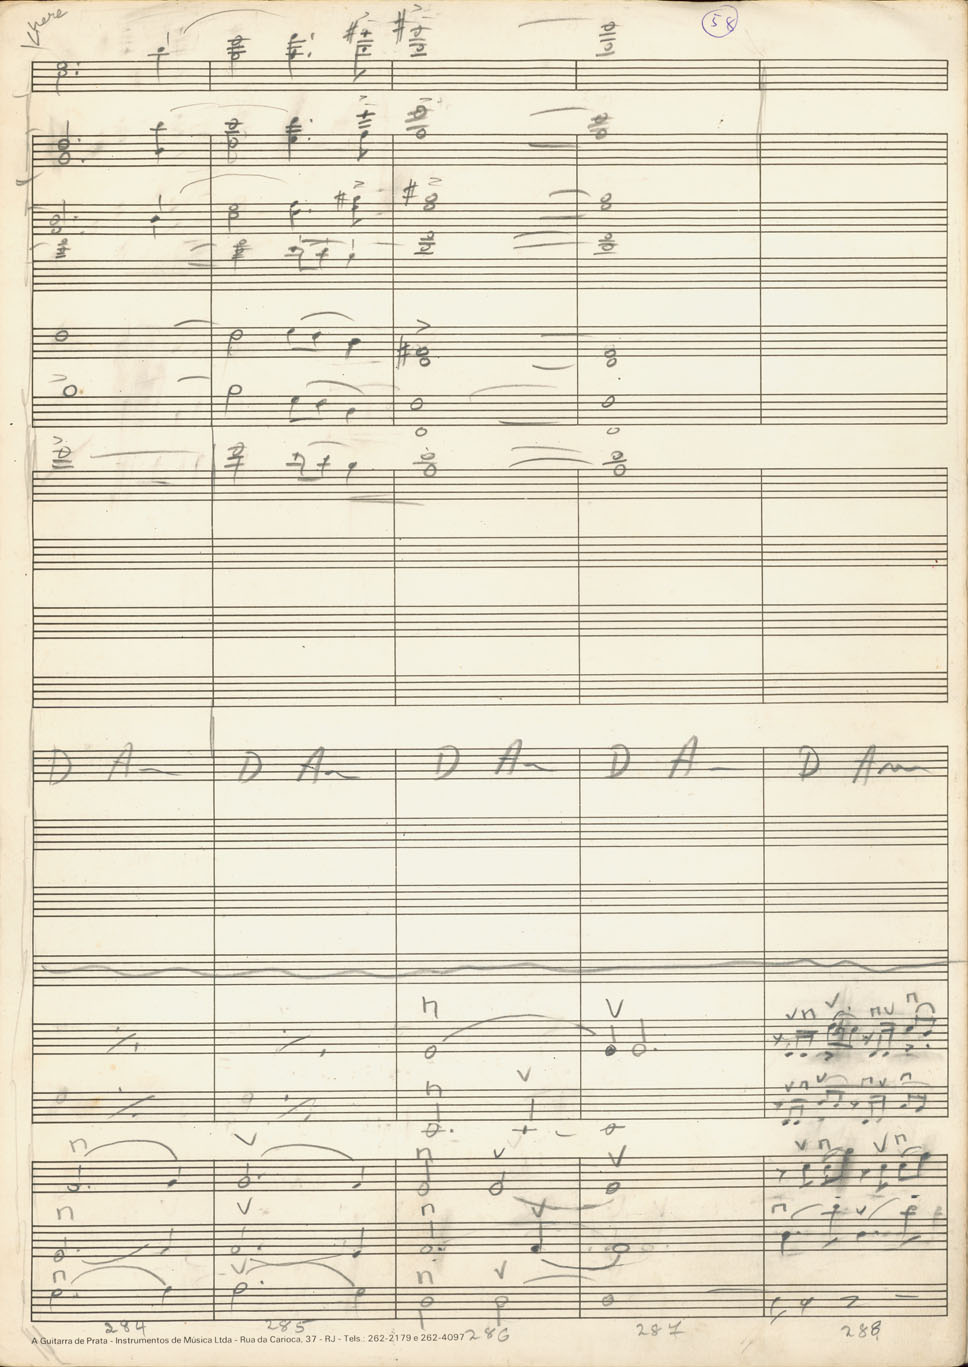 here
58
D Am D Am D Am D A D Am
284 285 286 287 288
A Guitarra de Prata - Instrumentos de Música Ltda - Rua da Carioca, 37 - RJ - Tels.: 262-2179 e 262-4097